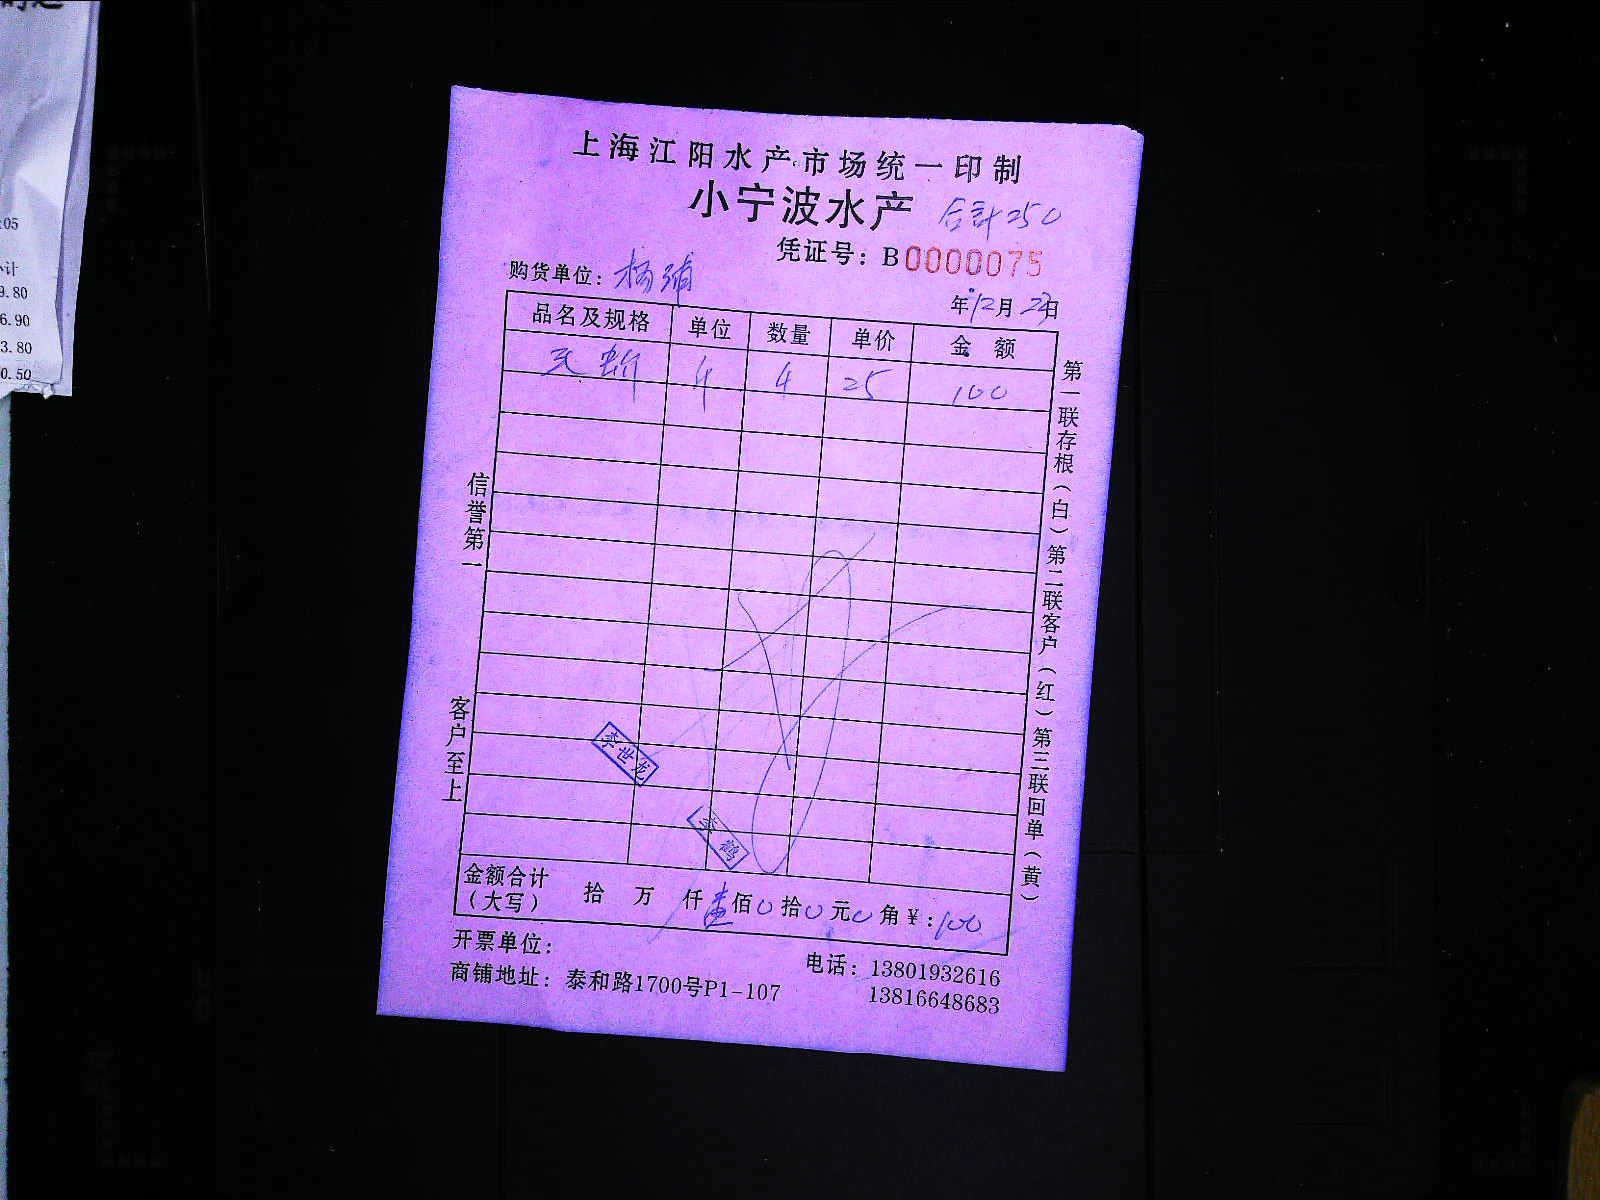 :05
小计
9.80
6.90
3.80
0.50
上海江阳水产市场统一印制
小宁波水产 合計250
凭证号：B0000075
购货单位：杨浦
年12月23日
品名及规格 单位 数量 单价 金额
4 25 100
信誉第一
客户至上
第一联存根（白）第二联客户（红）第三联回单（黄）
李世龙
李鹤
金额合计（大写） 拾 万 仟壹佰0拾0元0角¥：100
开票单位：
电话：13801932616
13816648683
商铺地址：泰和路1700号P1-107